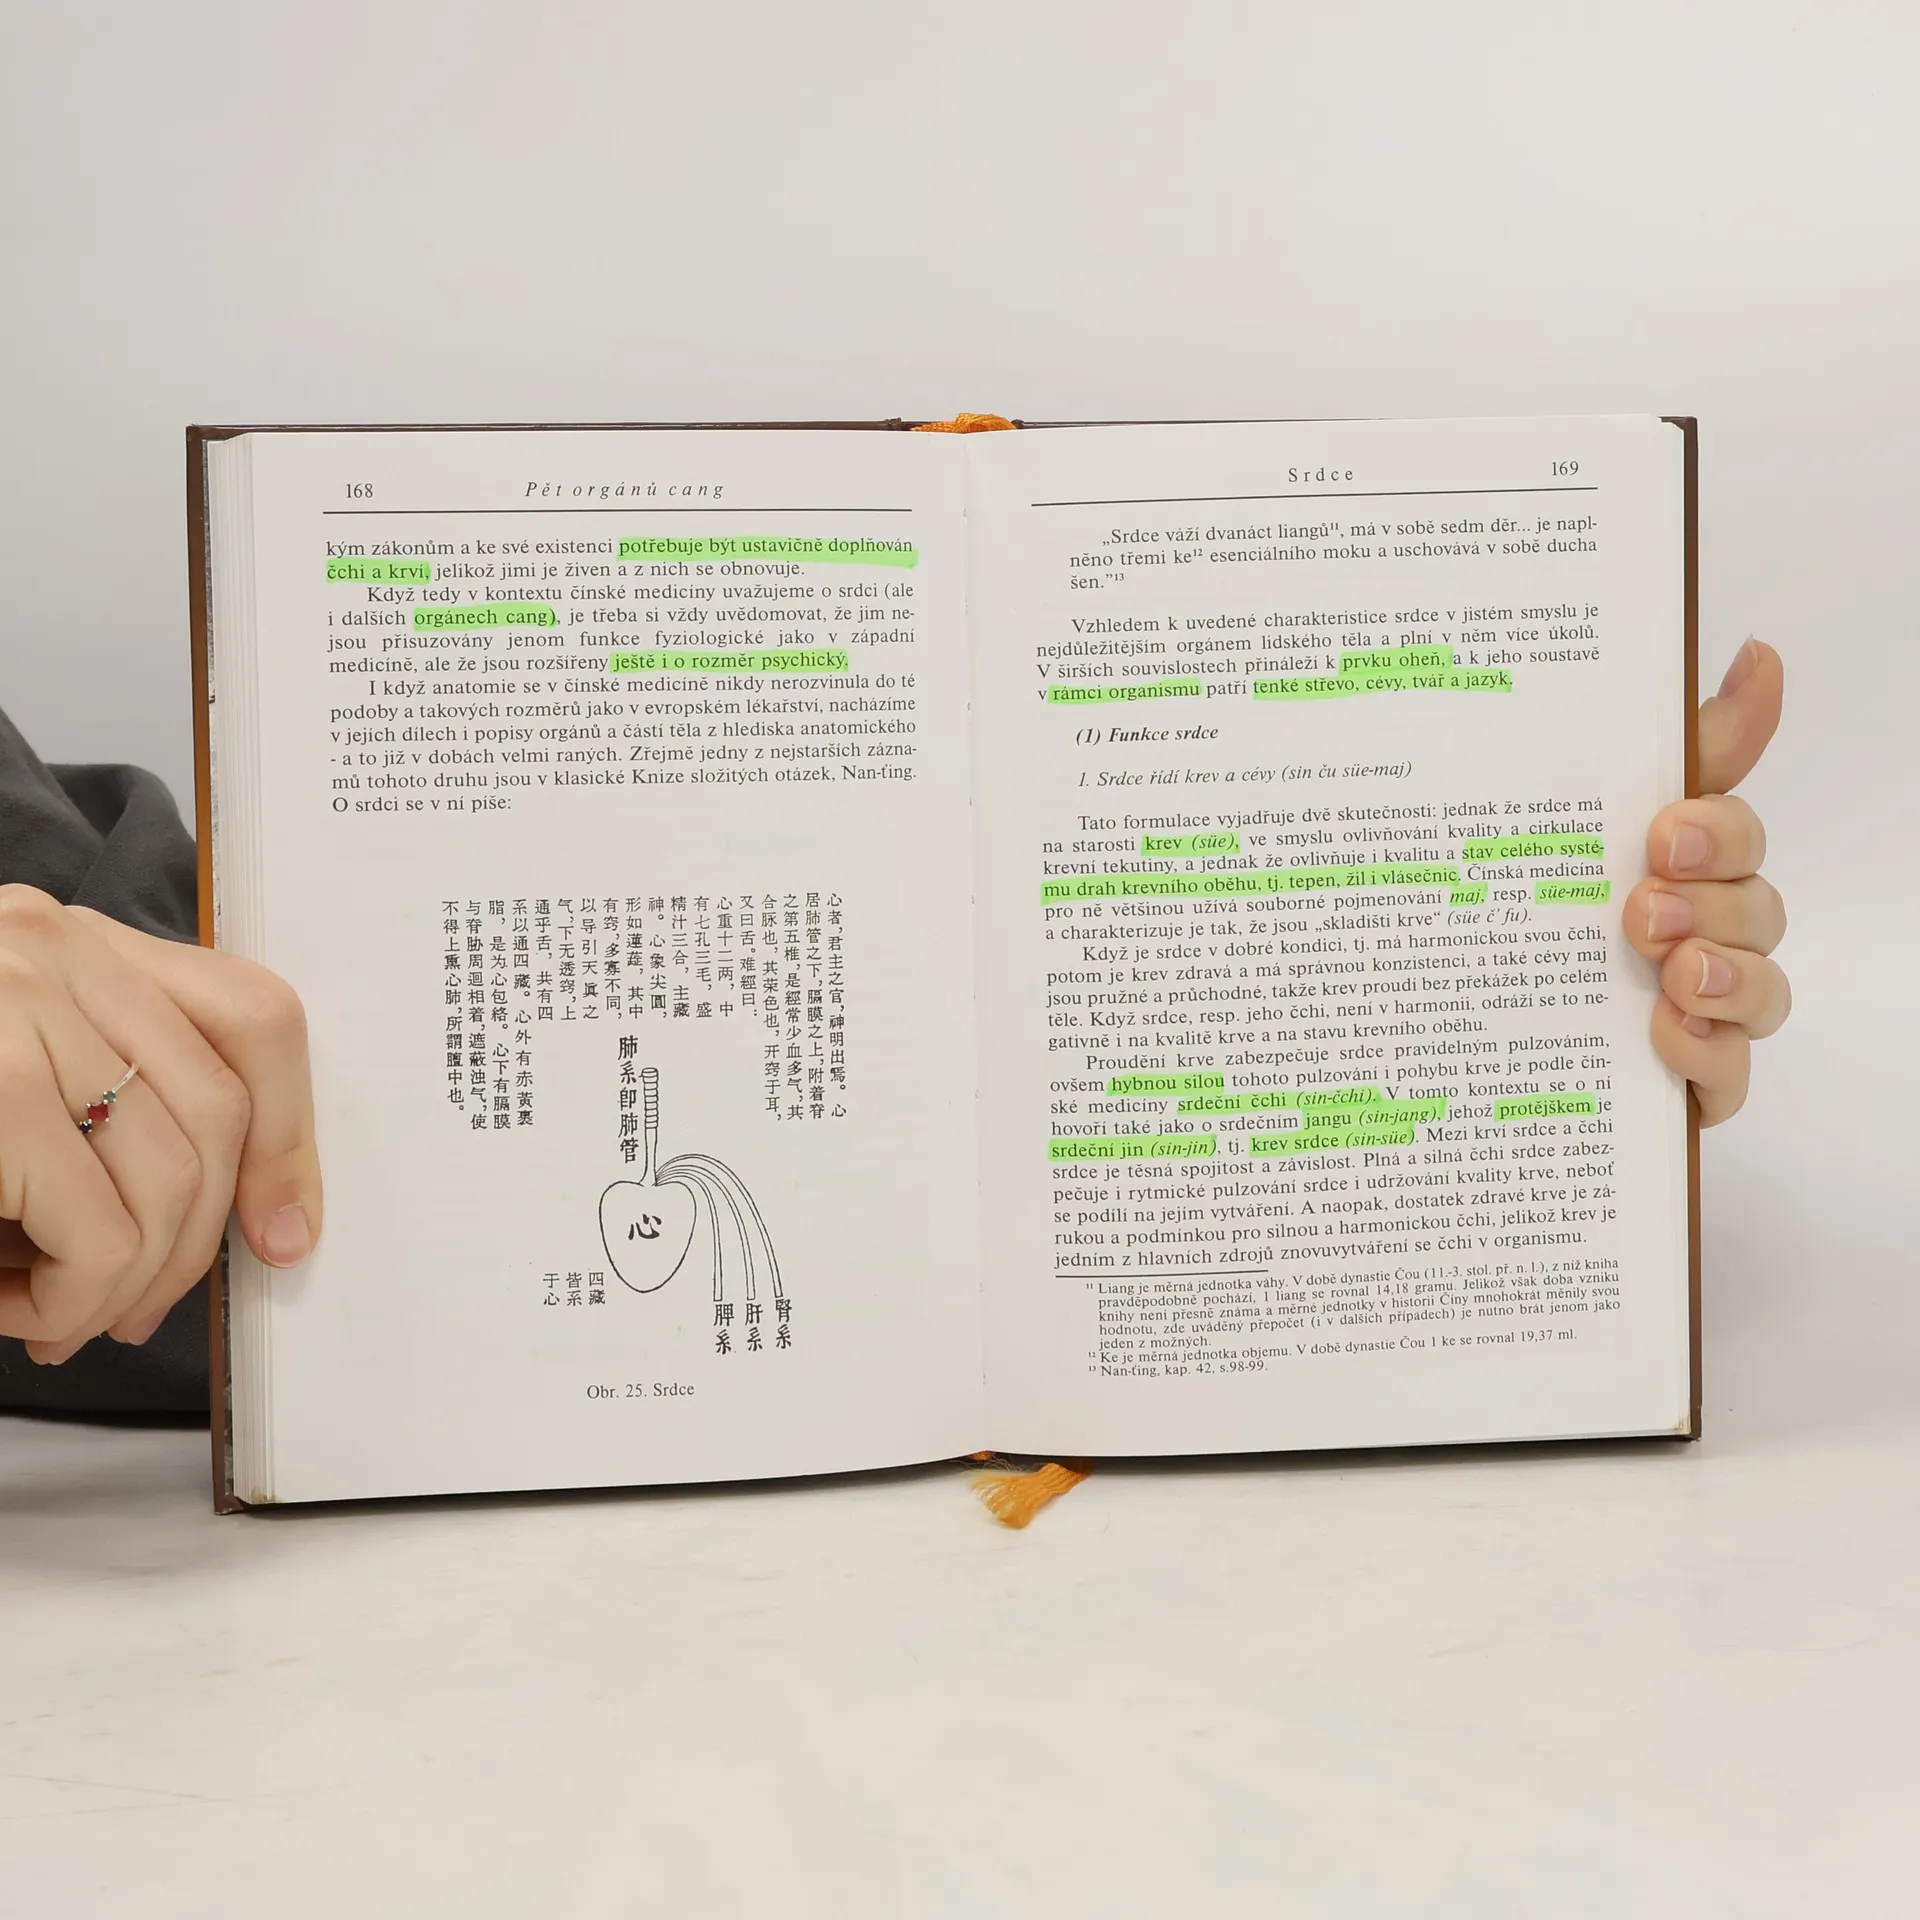 168
Pět orgánů cang
kým zákonům a ke své existenci potřebuje být ustavičně doplňován
čchi a krví, jelikož jimi je živen a z nich se obnovuje.
Když tedy v kontextu čínské medicíny uvažujeme o srdci (ale
i dalších orgánech cang), je třeba si vždy uvědomovat, že jim ne-
jsou přisuzovány jenom funkce fyziologické jako v západní
medicíně, ale že jsou rozšířeny ještě i o rozměr psychický.
I když anatomie se v čínské medicíně nikdy nerozvinula do té
podoby a takových rozměrů jako v evropském lékařství, nacházíme
v jejích dílech i popisy orgánů a částí těla z hlediska anatomického
- a to již v dobách velmi raných. Zřejmě jedny z nejstarších zázna-
mů tohoto druhu jsou v klasické Knize složitých otázek, Nan-ťing.
O srdci se v ní píše:
心者，君主之官，神明出焉。心
居肺管之下，膈膜之上，附着脊
之第五椎，是經常少血多气，其
合脉也，其荣色也，开窍于耳，
又曰舌。难經曰：
心重十二两，中
有七孔三毛，盛
精汁三合，主藏
神。心象尖圓，
形如蓮蕋，其中
有窍，多寡不同，
以导引天眞之
气，下无透窍，上
通乎舌，共有四
系以通四藏。心外有赤黄裹
脂，是为心包络。心下有膈膜
与脊胁周迴相着，遮蔽浊气，使
不得上熏心肺，所謂膻中也。
肺系卽肺管
心
四藏
皆系
于心
脾系
肝系
腎系
Obr. 25. Srdce
Srdce
169
„Srdce váží dvanáct liangů¹¹, má v sobě sedm děr... je napl-
něno třemi ke¹² esenciálního moku a uschovává v sobě ducha
šen.”¹³
Vzhledem k uvedené charakteristice srdce v jistém smyslu je
nejdůležitějším orgánem lidského těla a plní v něm více úkolů.
V širších souvislostech přináleží k prvku oheň, a k jeho soustavě
v rámci organismu patří tenké střevo, cévy, tvář a jazyk.
(1) Funkce srdce
1. Srdce řídí krev a cévy (sin ču süe-maj)
Tato formulace vyjadřuje dvě skutečnosti: jednak že srdce má
na starosti krev (süe), ve smyslu ovlivňování kvality a cirkulace
krevní tekutiny, a jednak že ovlivňuje i kvalitu a stav celého systé-
mu drah krevního oběhu, tj. tepen, žil i vlásečnic. Čínská medicína
pro ně většinou užívá souborné pojmenování maj, resp. süe-maj,
a charakterizuje je tak, že jsou „skladišti krve“ (süe č’ fu).
Když je srdce v dobré kondici, tj. má harmonickou svou čchi,
potom je krev zdravá a má správnou konzistenci, a také cévy maj
jsou pružné a průchodné, takže krev proudí bez překážek po celém
těle. Když srdce, resp. jeho čchi, není v harmonii, odráží se to ne-
gativně i na kvalitě krve a na stavu krevního oběhu.
Proudění krve zabezpečuje srdce pravidelným pulzováním,
ovšem hybnou silou tohoto pulzování i pohybu krve je podle čín-
ské medicíny srdeční čchi (sin-čchi). V tomto kontextu se o ní
hovoří také jako o srdečním jangu (sin-jang), jehož protějškem je
srdeční jin (sin-jin), tj. krev srdce (sin-süe). Mezi krví srdce a čchi
srdce je těsná spojitost a závislost. Plná a silná čchi srdce zabez-
pečuje i rytmické pulzování srdce i udržování kvality krve, neboť
se podílí na jejím vytváření. A naopak, dostatek zdravé krve je zá-
rukou a podmínkou pro silnou a harmonickou čchi, jelikož krev je
jedním z hlavních zdrojů znovuvytváření se čchi v organismu.
¹¹ Liang je měrná jednotka váhy. V době dynastie Čou (11.-3. stol. př. n. l.), z níž kniha
pravděpodobně pochází, 1 liang se rovnal 14,18 gramu. Jelikož však doba vzniku
knihy není přesně známa a měrné jednotky v historii Číny mnohokrát měnily svou
hodnotu, zde uváděný přepočet (i v dalších případech) je nutno brát jenom jako
jeden z možných.
¹² Ke je měrná jednotka objemu. V době dynastie Čou 1 ke se rovnal 19,37 ml.
¹³ Nan-ťing, kap. 42, s.98-99.